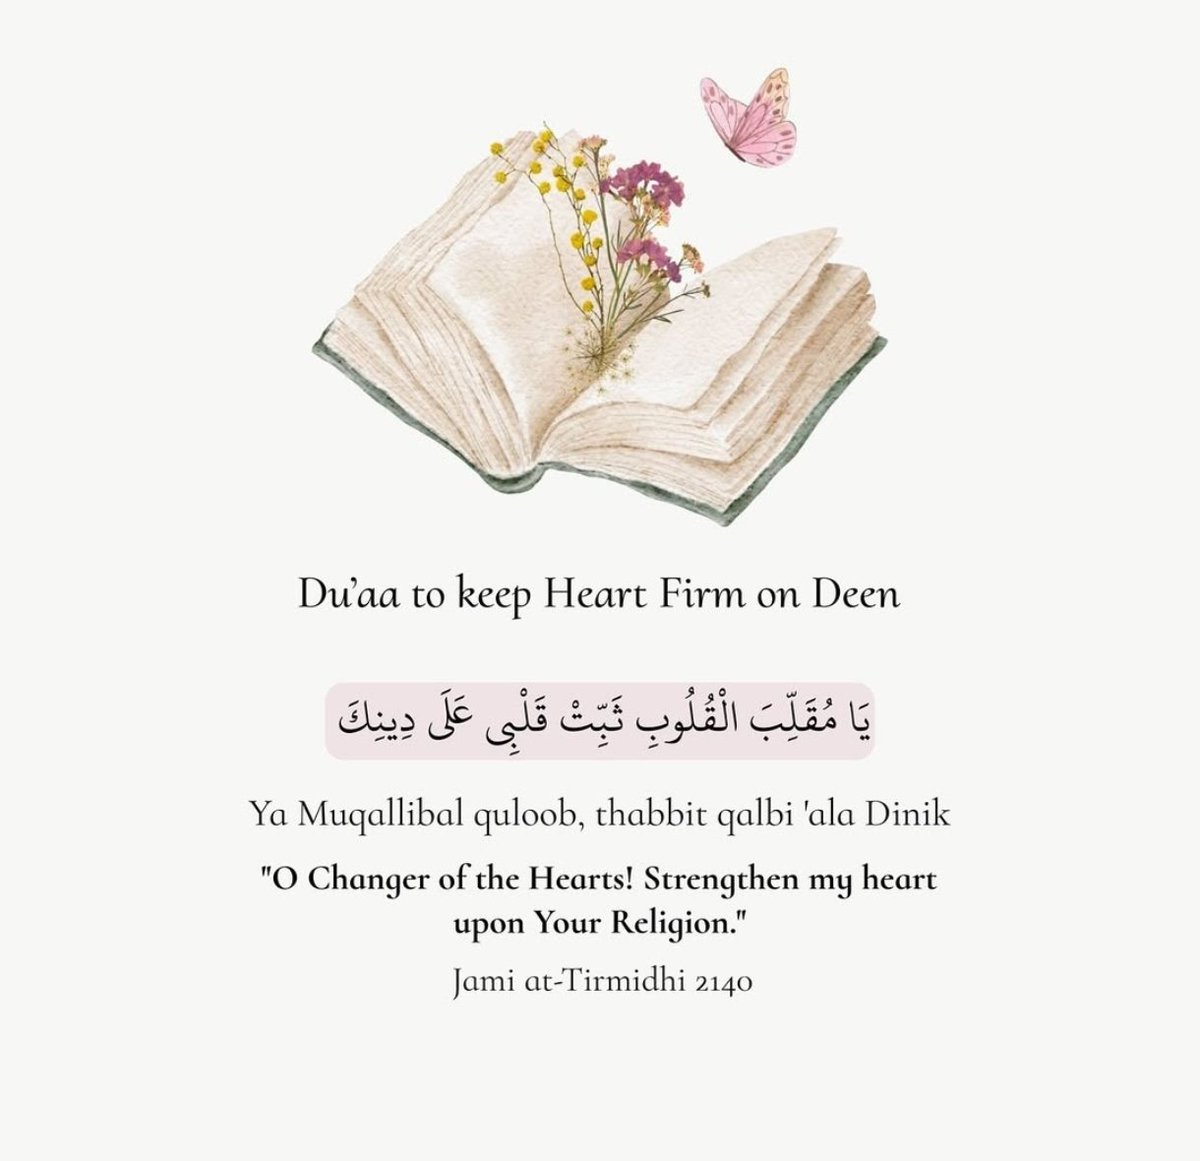 Du’aa to keep Heart Firm on Deen
يَا مُقَلِّبَ الْقُلُوبِ ثَبِّتْ قَلْبِي عَلَى دِينِكَ
Ya Muqallibal quloob, thabbit qalbi 'ala Dinik
"O Changer of the Hearts! Strengthen my heart
upon Your Religion."
Jami at-Tirmidhi 2140